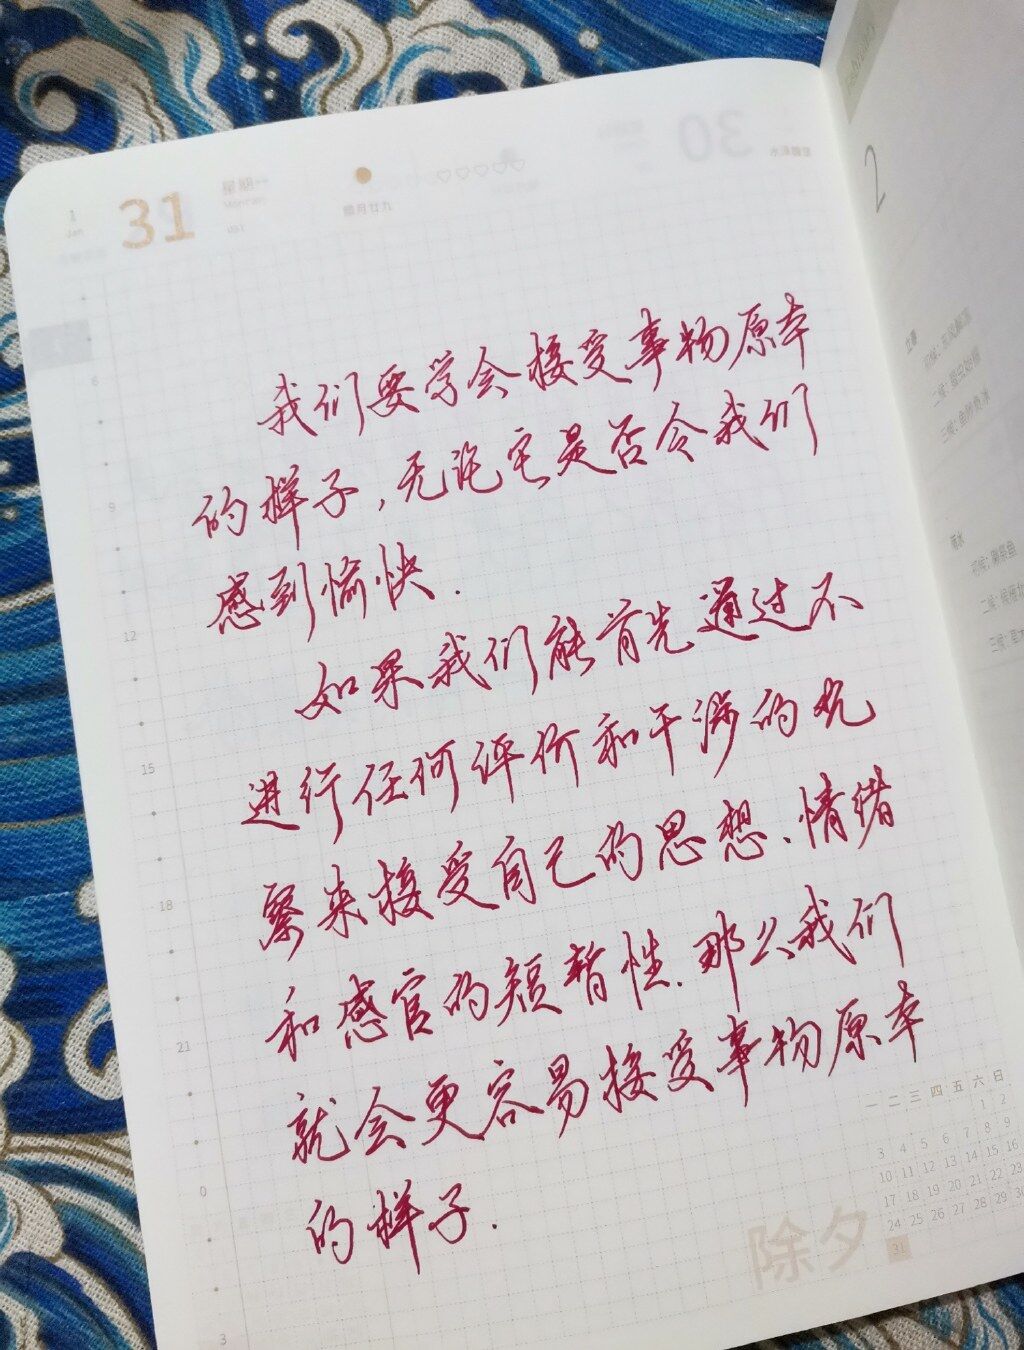 1
Jan
31
星期一
腊月廿九
30
2
我们要学会接受事物原本
的样子,无论它是否令我们
感到愉快.
如果我们能首先通过不
进行任何评价和干涉的光
察来接受自己的思想、情绪
和感官的短暂性.那么我们
就会更容易接受事物原本
的样子.
6
9
12
15
18
21
0
3
立春
雨水
一 二 三 四 五 六 日
1 2
3 4 5 6 7 8 9
10 11 12 13 14 15 16
17 18 19 20 21 22 23
24 25 26 27 28 29 30
31
除夕